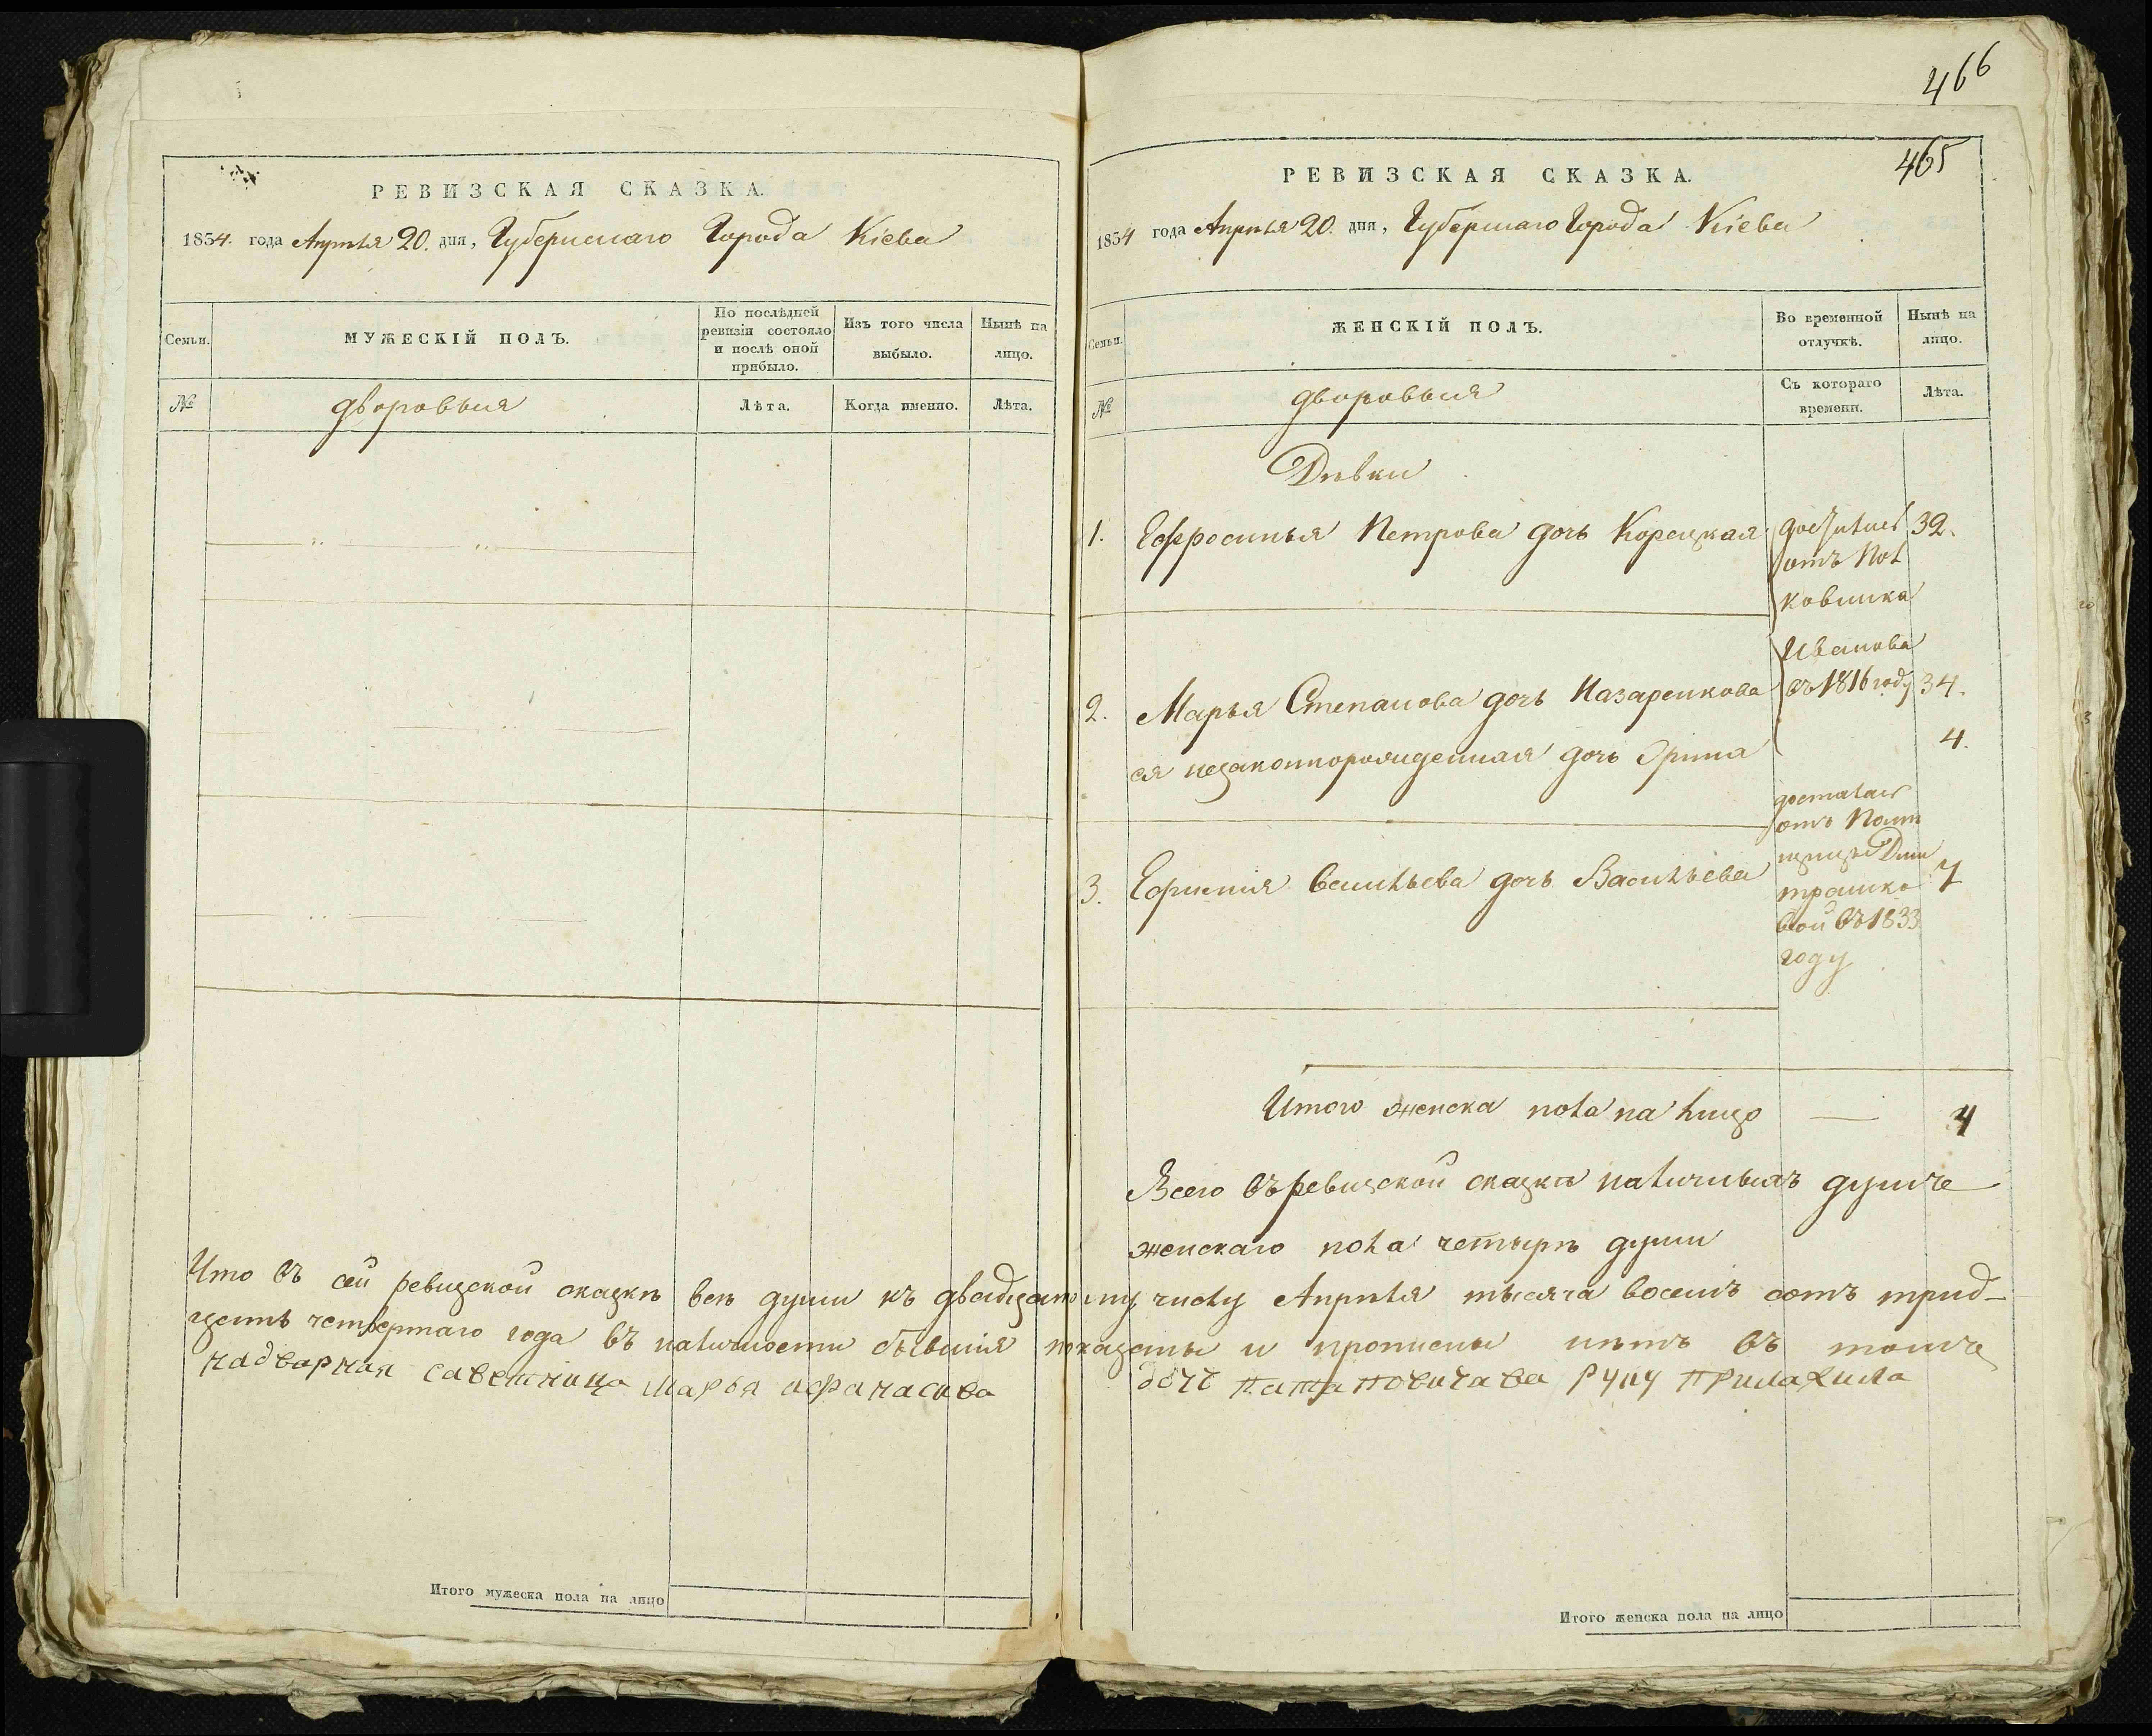 РЕВИЗСКАЯ СКАЗКА.
1834. года Апрѣля 20. дня, Губернскаго Города Кіева
Семьи.
МУЖЕСКІЙ ПОЛЪ.
По послѣдней
ревизіи состояло
и послѣ оной
прибыло.
Изъ того числа
выбыло.
Нынѣ на
лицо.
№
дворовыя
Лѣта.
Когда именно.
Лѣта.
Итого мужеска пола на лицо
466
465
РЕВИЗСКАЯ СКАЗКА.
1834 года Апрѣля 20. дня, Губернскаго Города Кіева
Семьи.
ЖЕНСКІЙ ПОЛЪ.
Во временной
отлучкѣ.
Нынѣ на
лицо.
№
дворовыя
Съ котораго
времени.
Лѣта.
Дѣвки
1. Ефросинья Петрова дочь Корецкая 32.
отъ Пол
ковника
Иванова
въ 1816 году
2. Марья Степанова дочь Назаренкова 34.
ея незаконнорожденная дочь Орина 4.
досталась
отъ Пом
ѣщицы Дми
трашко
вой въ 1833
году
3. Ефимія Васильева дочь Васильева 7
Итого женска пола на лицо — 4
Всего въ ревизской сказкѣ наличныхъ душъ
женскаго пола четырѣ души
Что въ сей ревизской сказкѣ всѣ души къ двадцатому числу Апрѣля тысяча восемъ сотъ трид-
цать четвертаго года въ наличности бывшія показаны и прописны нѣтъ въ томъ
надворная саветница Марья Афанасива дочь Патаповичава руку прилажила
Итого женска пола на лицо